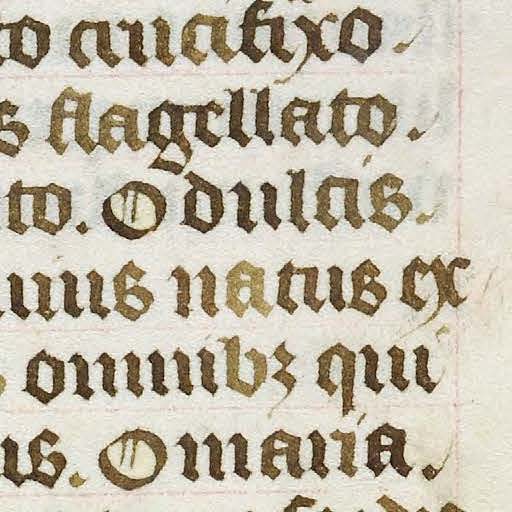 to crucifixo.
s flagellato.
to. O dulcis.
mus natus ex
omnibꝫ qui
us. O maria.